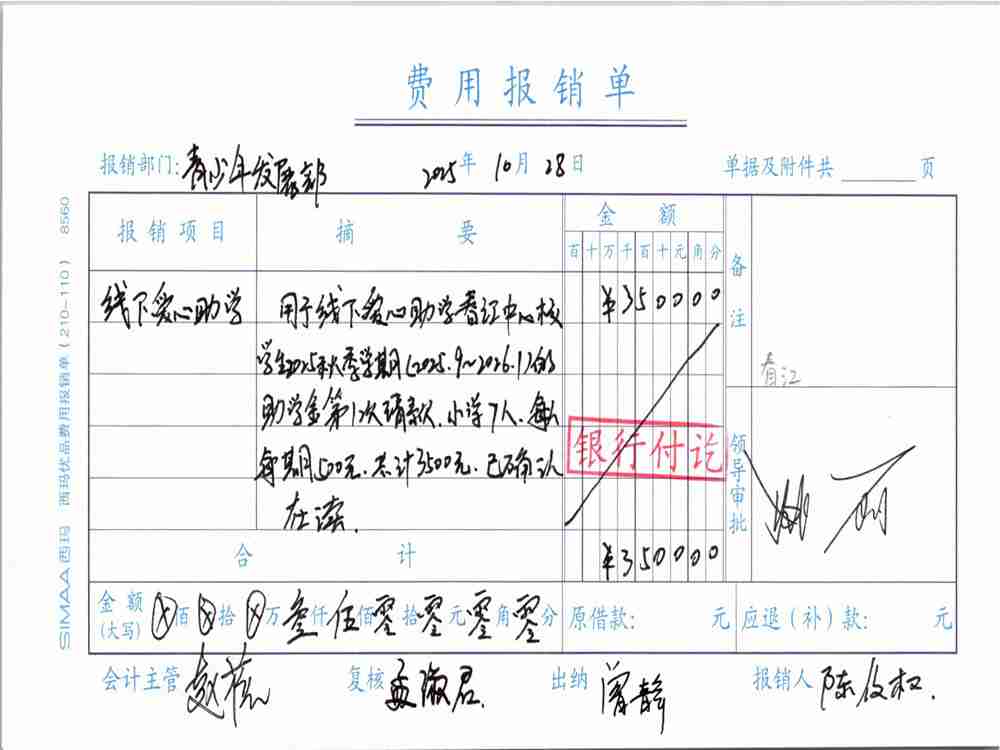 费用报销单
报销部门: 青少年发展部 2025年 10月 28日 单据及附件共 页
报销项目 摘要 金额 备注
百十万千百十元角分
线下爱心助学 用于线下爱心助学春江中心校 ¥350000
学生2025秋季学期(2025.9~2026.1)的
助学金第1次请款. 小学7人. 每人
每期500元. 共计3500元. 已确认
在读.
春江
银行付讫
领导审批
合计 ¥350000
金额(大写) ⊗百⊗拾⊗万叁仟伍佰零拾零元零角零分 原借款: 元 应退(补)款: 元
会计主管 赵 复核 孟淑君. 出纳 曾静 报销人 陈俊权.
SIMAA西玛 西玛优品费用报销单(210-110) 8560